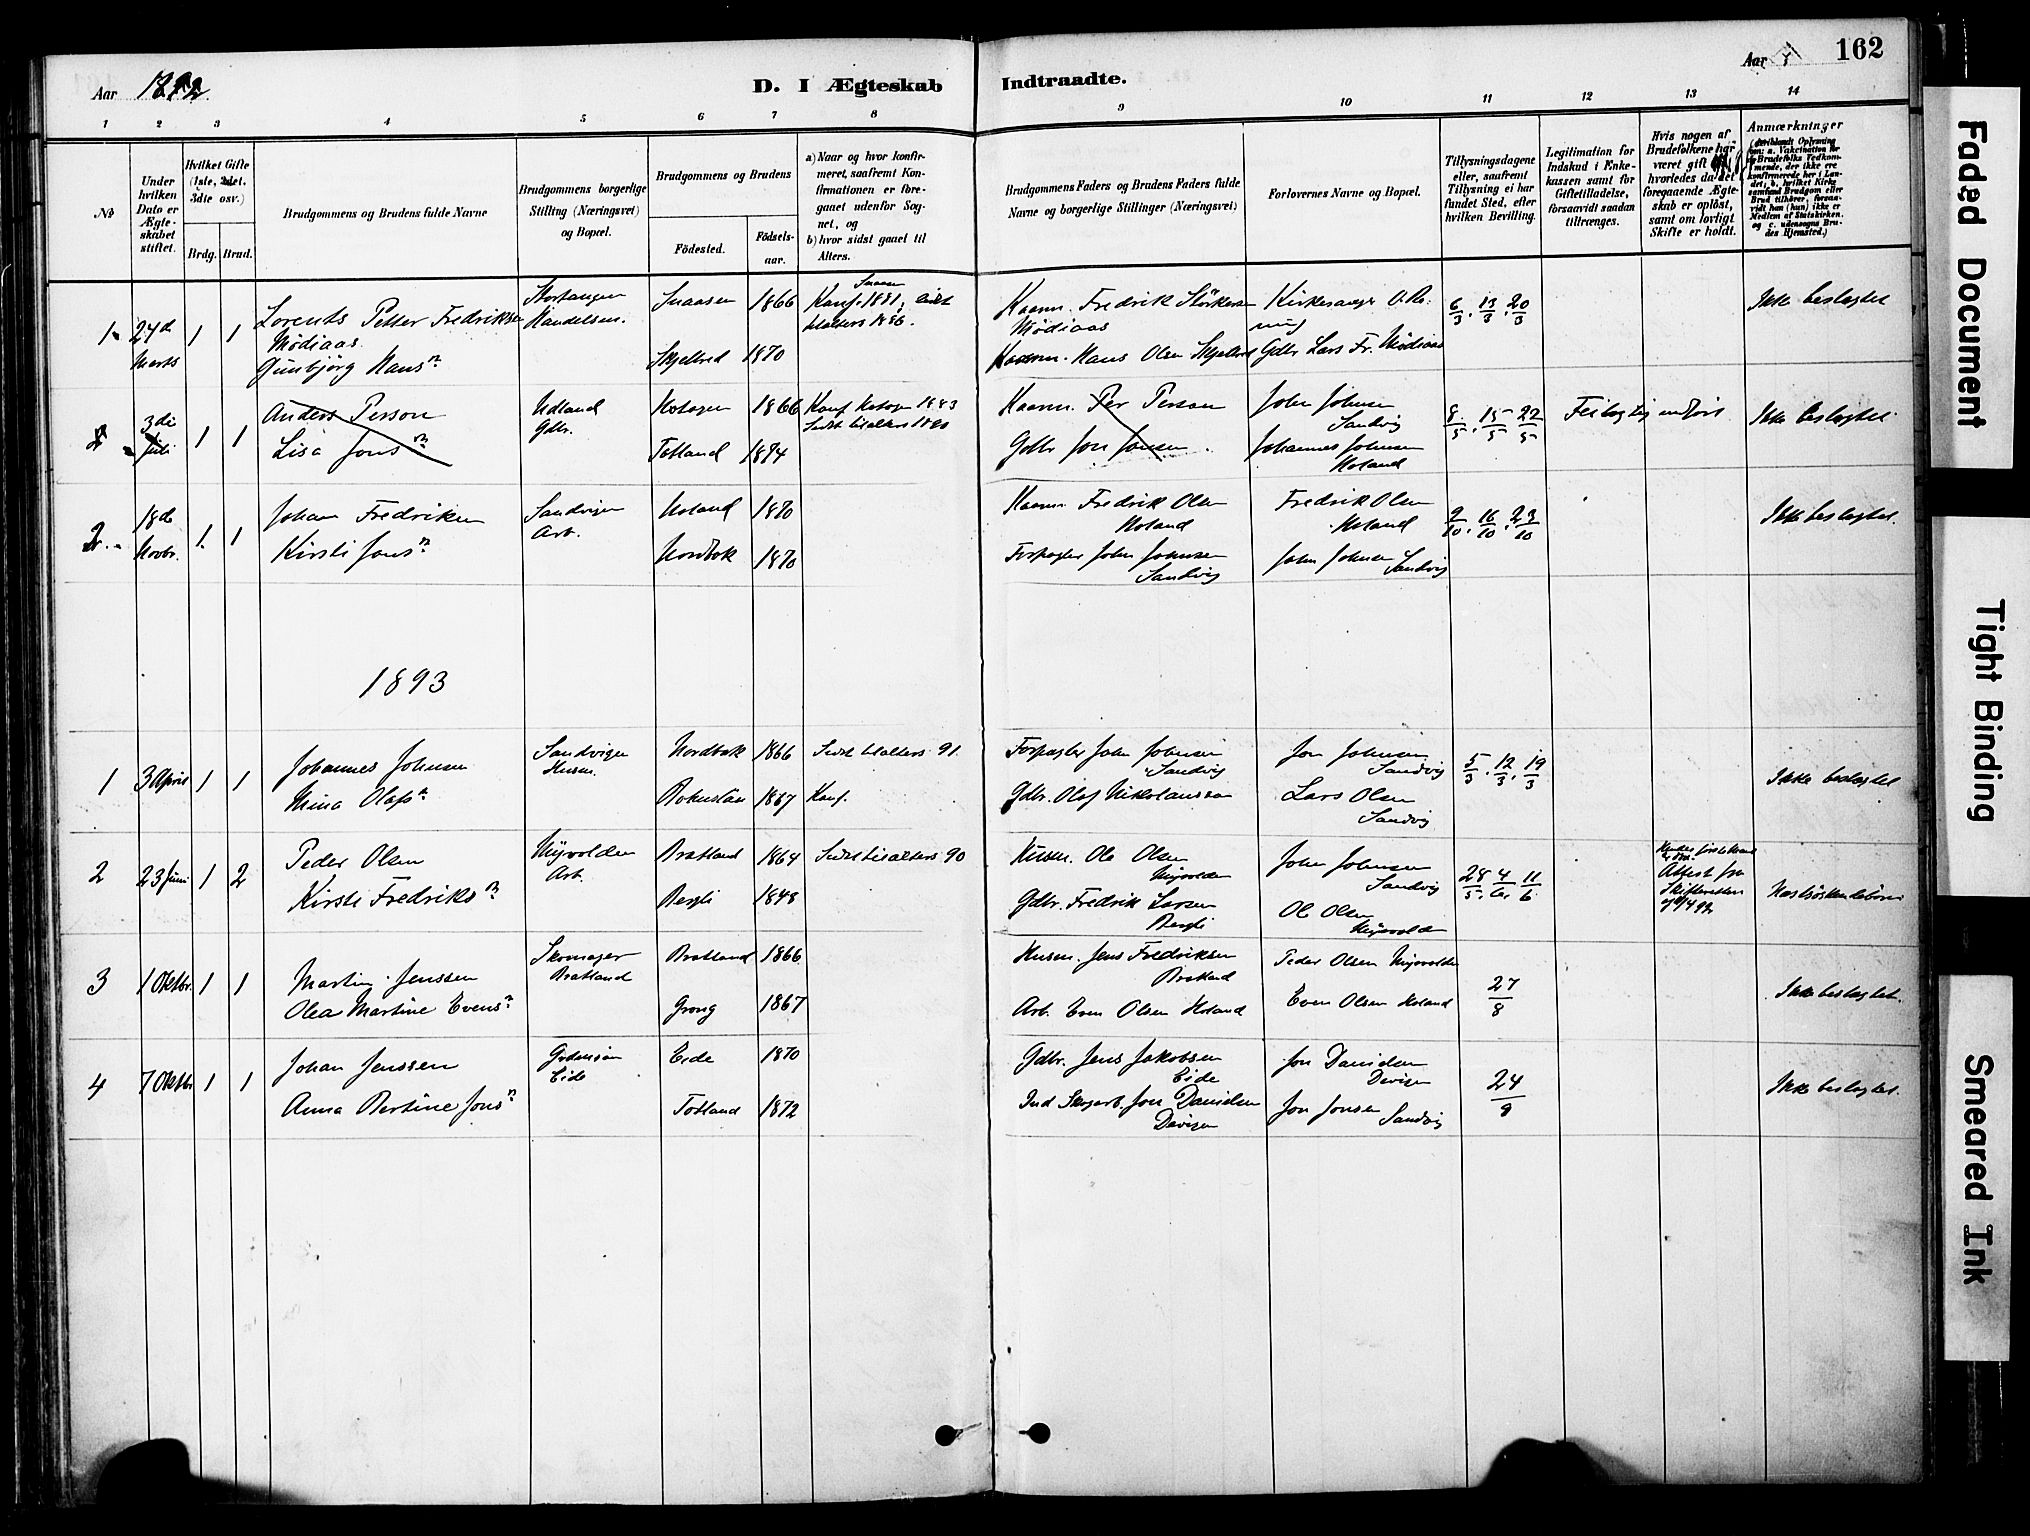 Aar 1892.
D. I Ægteskab Indtraadte.
Aar
162
1 2 3 4 5 6 7 8 9 10 11 12 13 14
No
Under hvilken Dato er Ægteskabet stiftet.
Hvilket Gifte (1ste, 2det, 3die osv.)
Brdg. Brud.
Brudgommens og Brudens fulde Navne
Brudgommens borgerlige Stilling (Næringsvei) og Bopæl.
Brudgommens og Brudens
Födested.
Födselsaar.
a) Naar og hvor konfirmeret, saafremt Konfirmationen er foregaaet udenfor Sognet, og
b) hvor sidst gaaet til Alters.
Brudgommens Faders og Brudens Faders fulde Navne og borgerlige Stillinger (Næringsvei)
Forlovernes Navne og Bopæl.
Tillysningsdagene eller, saafremt Tillysning ei har fundet Sted, efter hvilken Bevilling.
Legitimation for Indskud i Enkekassen samt for Giftetilladelse, forsaavidt saadan tiltrænges.
Hvis nogen af Brudefolkene har været gift hvorledes da det foregaaende Ægteskab er oplöst, samt om lovligt Skifte er holdt.
Anmærkninger
1 24de Marts 1 1
Lorents Petter Fredriksen Mödiaas
Gunbjörg Hansn
Handelsm.
Snaasen 1866
Skjelbred 1870
Snaasen
Konf. 1881, sidst tilalters 1886.
Kaarm. Fredrik Störkersen Mödiaas
Kaarm. Hans Olsen Skjelbred
Kirkesanger O.
Gdbr Lars Fr. Mödiaas
6/3. 13/3. 20/3
Ikke beslægtet
2 3die Juli 1 1
Anders Person
Lisa Jonsn
Udland Gdbr.
Kotogen 1866
Totland 1874
Konf. Kotogen 1883
Sidst tilalters 1890
Kaarm. Per Person
Gdbr Jon Jonsen
John Johnsen Sandvig
Johannes Johnsen Holand
8/5. 15/5 22/5
Feilagtig indført
Ikke beslægtet
2. 18de Novbr. 1. 1
Johan Fredriksen
Kirsti Jonsn
Sandvigen Arb.
Holand 1870
Nordbok 1870
Kaarm. Fredrik Olsen Holand
Forpagter John Johnsen Sandvig
Fredrik Olsen Holand
John Johnsen Sandvig
9/10. 16/10. 23/10
Ikke beslægtet.
1893
1 3 April 1 1
Johannes Johnsen
Mina Olafsn
Sandvigen Husm.
Nordbok 1866
1867
Sidst tilalters 91.
Konf.
Forpagter John Johnsen Sandvig
Gdbr. Olof Nikolausson
Jon Johnsen Sandvig
Lars Olsen Sandvig
5/3. 12/3. 19/3
Ikke beslægtet
2 23 Juni 1 2
Peder Olsen
Kirsti Fredriksn
Myrvolden Arb.
Bratland 1864
Bergli 1848
Sidst tilalters 90
Husm. Ole Olsen Myrvolden
Gdbr. Fredrik Larsen Bergli
John Johnsen Sandvig
Ole Olsen Myrvolden
28/5. 4/6. 11/6
Attest fra Skifteretten
Næstsöskendebörn
3 1 Oktbr. 1 1
Martin Jenssen
Olea Martine Evensn
Skomager Bratland
Bratland 1866
Grong 1867
Husm. Jens Fredriksen Bratland
Arb. Even Olsen Holand
Peder Olsen Myrvolden
Even Olsen Holand
27/8
Ikke beslægtet.
4 7 Oktbr 1 1
Johan Jenssen
Anna Bertine Jonsn
Eide
Eide 1870
Totland 1872
Gdbr. Jens Jakobsen Eide
Ind Skogarb. Jon Danielsen Devigen
Jon Danielsen Devigen
Jon Jonsen Sandvig
24/9
Ikke beslægtet.
Faded Document
Tight Binding
Smeared Ink